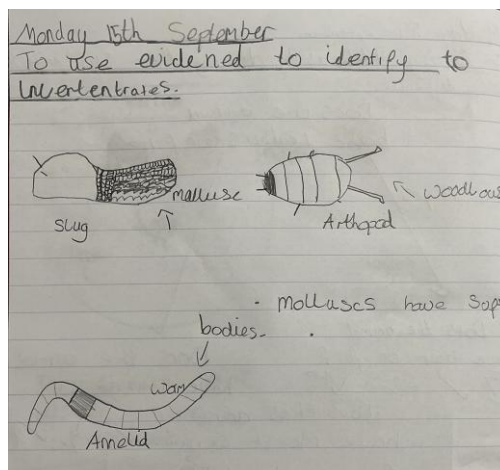 Monday 15th September
To use evidened to identify to
Invertentrates.
Malluse
Woodlous
Slug
Arthopod
. Molluscs have Sop
bodies. .
Worm
Amelid